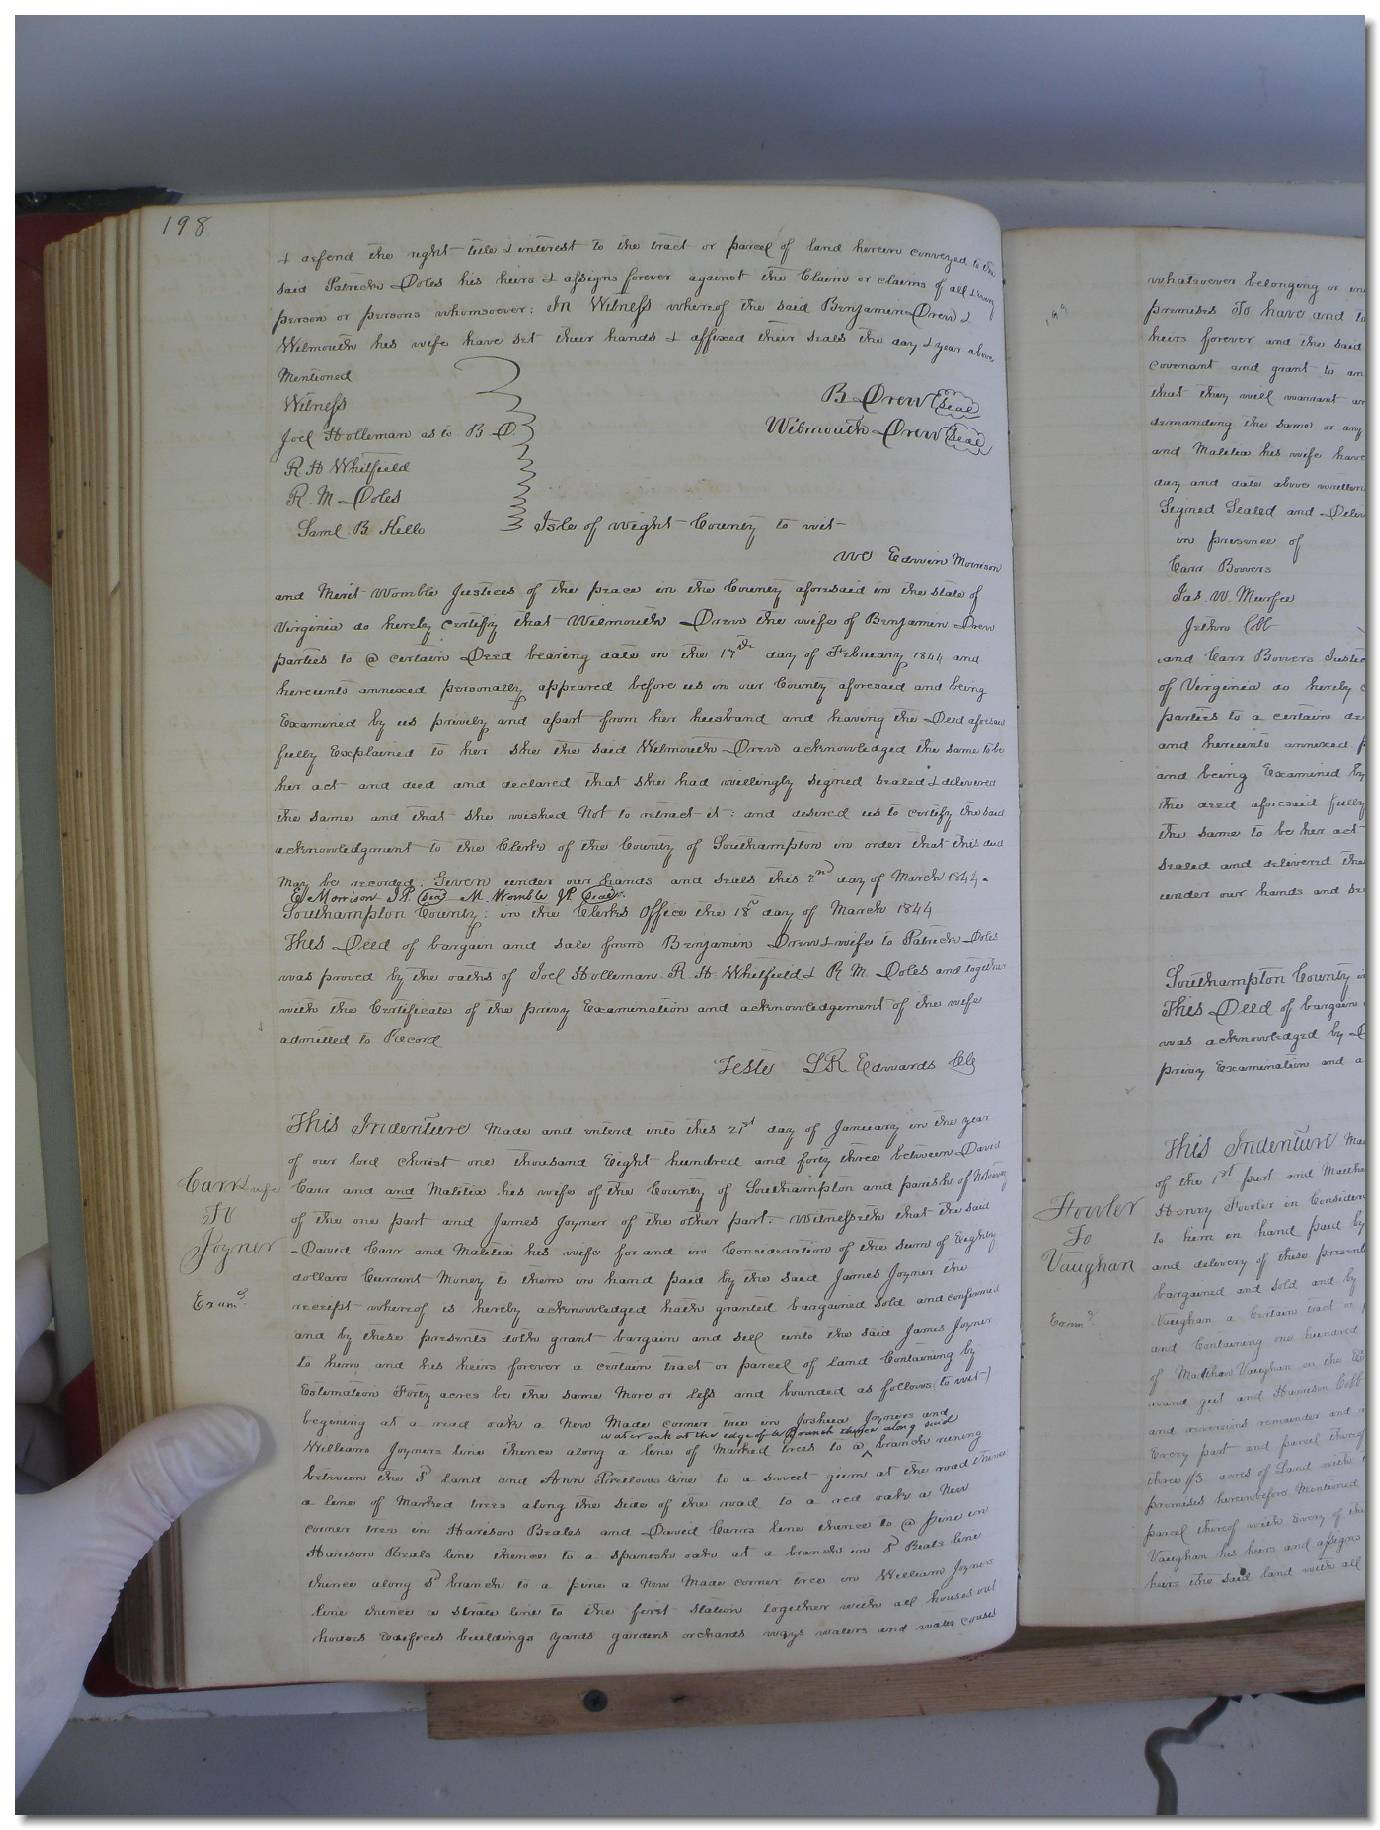 198
& defend the right title & interest to the tract or parcel of land herein conveyed to the
said Patrick Doles his heirs & assigns forever against the Claim or claims of all & every
person or persons whomsoever: In Witness whereof the said Benjamin Drew &
Wilmouth his wife have set their hands & affixed their seals the day & year above
Mentioned
Witness
B Drew Seal
Joel Holleman as to B. D.
Wilmouth Drew Seal
R. H Whitfield
R. M. Doles
Saml. B. Hello
Isle of wight County to wit
We Edwin Morrison
and Merit Womble Justices of the peace in the County aforesaid in the state of
Virginia do hereby certify that Wilmouth Drew the wife of Benjamin Drew
parties to @ certain Deed bearing date on the 17th day of February 1844 and
hereunto annexed personally appeared before us in our County aforesaid and being
Examined by us privily and apart from her husband and having the Deed aforesaid
fully Explained to her she the said Wilmouth Drew acknowledged the same to be
her act and deed and declared that she had willingly signed sealed & delivered
the same and that she wished Not to retract it: and desired us to certify the said
acknowledgment to the Clerk of the County of Southampton in order that this deed
May be recorded. Given under our hands and seals this 2nd day of March 1844.
E. Morrison J.P. Seal M. Womble JP Seal
Southampton County: in the Clerks Office the 18th day of March 1844
This Deed of bargain and sale from Benjamin Drew & wife to Patrick Doles
was proved by the oaths of Joel Holleman R. H. Whitfield & R. M. Doles and together
with the Certificate of the privy Examination and acknowledgement of the wife
admitted to Record
Teste L R Edwards Clk
This Indenture Made and enterd into this 21st day of January in the year
of our lord christ one thousand Eight hundred and forty three between David
Carr & wife
To
Joyner
Exam.d
Carr and and Malitia his wife of the County of Southampton and parish of Nottoway
of the one part and James Joyner of the other part: Witnesseth that the said
David Carr and Malitia his wife for and in Consideration of the sum of Eighty
dollars Current Money to them in hand paid by the said James Joyner the
receipt whereof is hereby acknowledged hath granted bargained sold and confirmed
and by these presents doth grant bargain and sell unto the said James Joyner
to him and his heirs forever a certain tract or parcel of land Containing by
Estimation Forty acres be the same More or less and bounded as follows (to wit)
begining at a read oak a New Made corner tree in Joshua Joyners and
water oak at the edge of a Branch thence along said
Williams Joyners line thence along a line of Marked trees to a branch runing
between the sd land and Ann line to a sweet gum at the road thence
a line of Marked trees along the side of the road to a red oak a New
corner tree in Harison Beales and David Carrs line thence to @ pine in
Harison Beals line thence to a spanish oak at a branch in sd Beals line
thence along sd branch to a pine a New Made corner tree in William Joyners
line thence a strate line to the first station together with all houses out
houses buildings yards gardens orchards ways waters and water couses
199
whatsoever belonging or
premises To have and to
heirs forever and the said
covenant and grant to
that they will warrant
demanding the same or any
and Malitia his wife have
day and date above written
Signed Sealed and
in presence of
Carr Bowers
Jas. W. Murfee
Jethro Cobb
and Carr Bowers
of Virginia do hereby
parties to a certain
and hereunto annexed
and being Examined by
the deed aforesaid fully
the same to be her act
sealed and delivered the
under our hands and
Southampton County
This Deed of bargain
was acknowledged by
privy Examination and
This Indenture
of the 1st part and
Fowler
To
Vaughan
Exam.d
Henry Fowler in
to him in hand paid by
and delivery of these
bargained and sold and by
Vaughan a Certain tract or
and Containing one hundred
of Matthew Vaughan on the
and Harrison Cobb
and reversions remainder and
Every part and parcel
three 1/3 acres of Land with
premises hereinbefore Mentioned
parcel thereof with Every of
Vaughan his heirs and assigns
heirs the said land with all